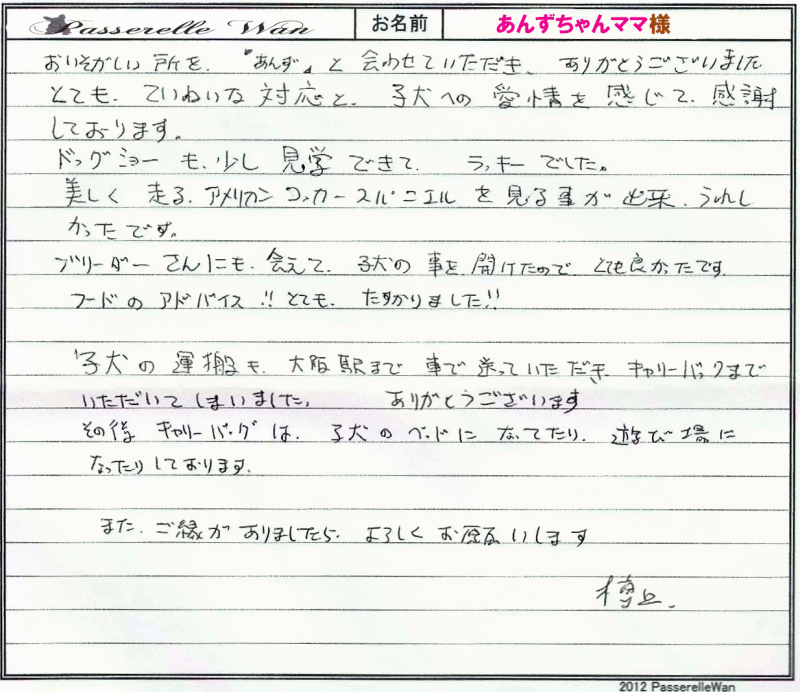 Passerelle Wan お名前 あんずちゃんママ様
おいそがしい所を、『あんず』と会わせていただき、ありがとうございました
とても、ていねいな対応と、子犬への愛情を感じて、感謝
しております。
ドッグショーも、少し見学できて、ラッキーでした。
美しく走る、アメリカンコッカースパニエルを見る事が出来、うれし
かったです。
ブリーダーさんにも、会えて、子犬の事を、聞けたので、とても良かったです
フードのアドバイス!!とても、たすかりました!!
子犬の運搬も、大阪駅まで車で送っていただき、キャリーバックまで
いただいてしまいました。ありがとうございます
その後キャリーバッグは、子犬のベッドになってたり、遊び場に
なったりしております。
また、ご縁がありましたら、よろしくお願いします
2012 PasserelleWan